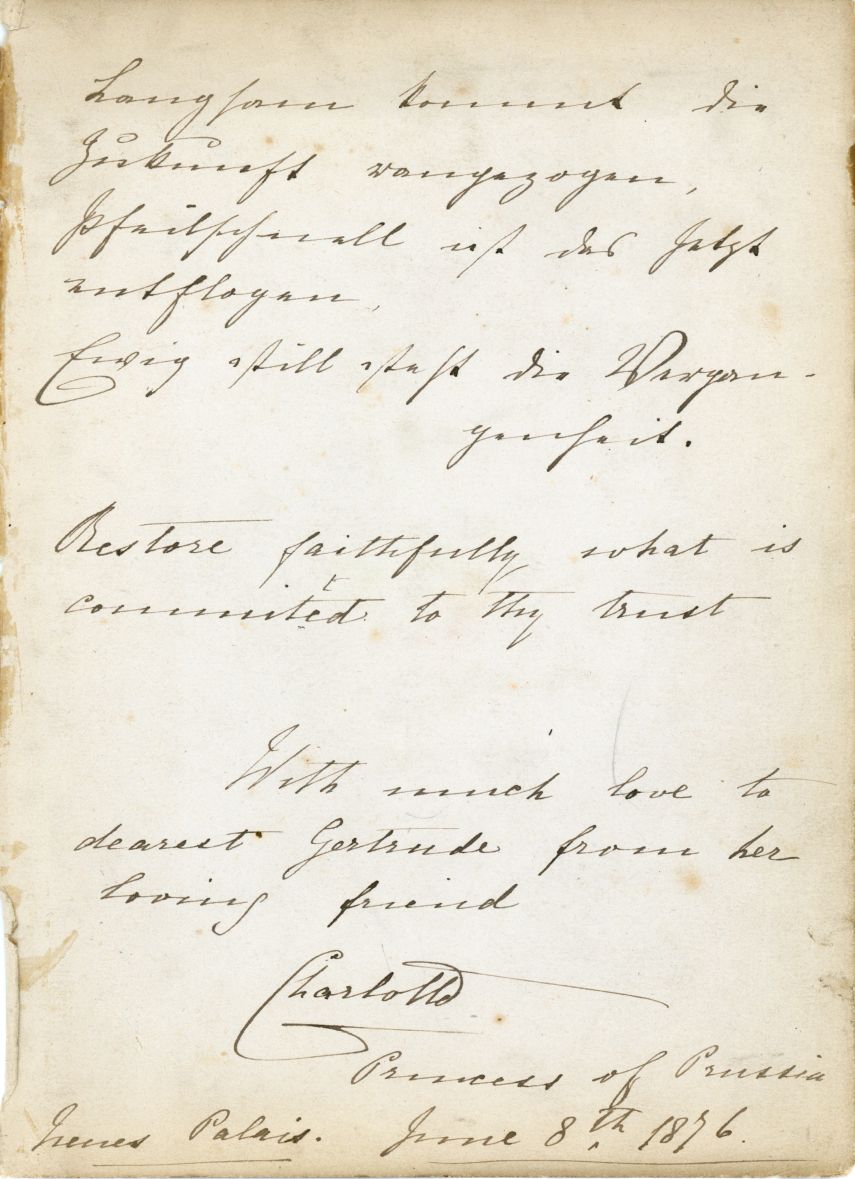 Langsam kommt die
Zukunft rangezogen,
Pfeilschnell ist das Jetzt
entflogen,
Ewig still steht die Vergan-
genheit.
Restore faithfully what is
commited to thy trust
With much love to
dearest Gertrude from her
loving friend
Charlotte
Princess of Prussia
Neues Palais. June 8th 1876.